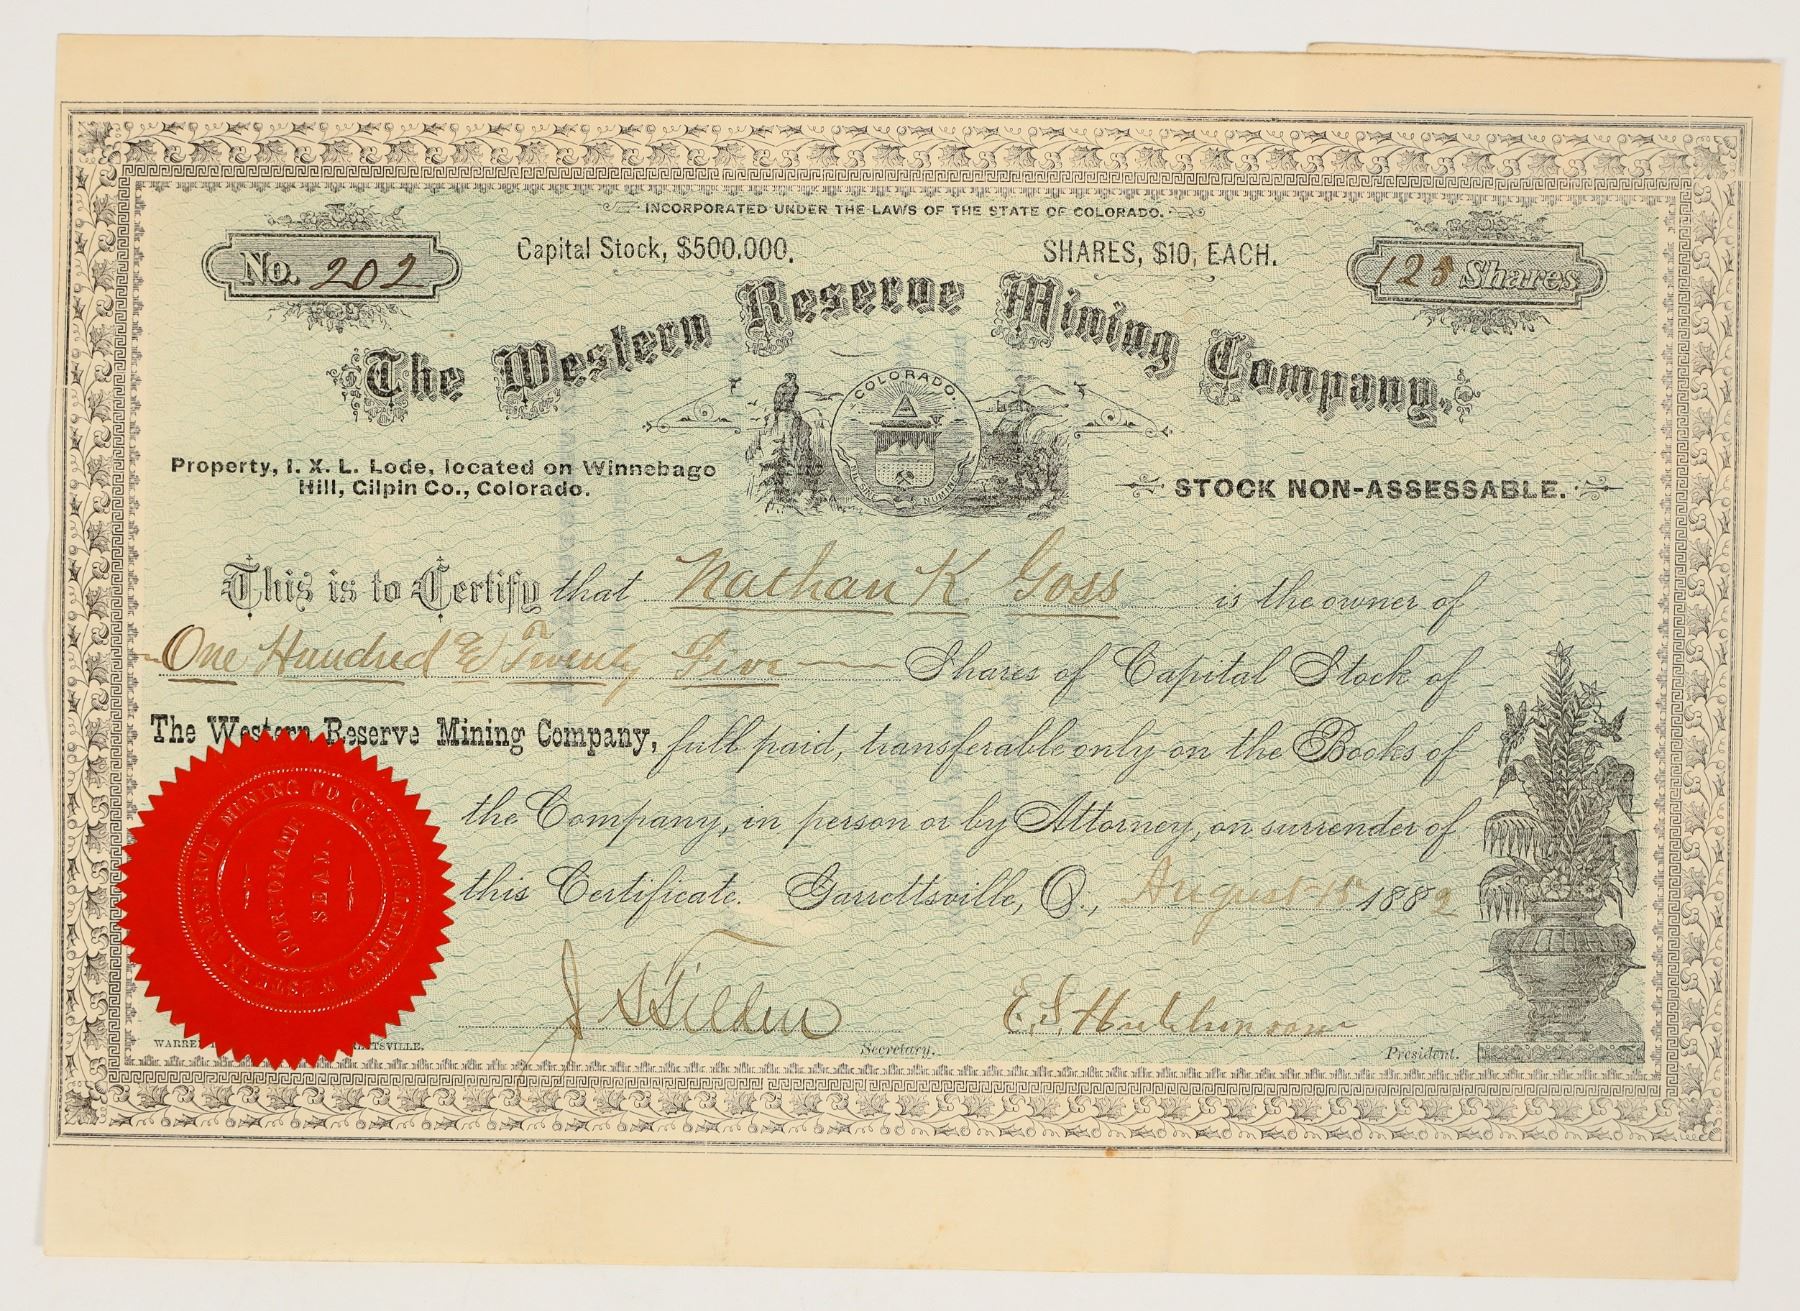 INCORPORATED UNDER THE LAWS OF THE STATE OF COLORADO.
No. 202
Capital Stock, $500.000.
SHARES, $10, EACH.
125 Shares
The Western Reserve Mining Company.
COLORADO.
NUMINE
Property, I. X. L. Lode, located on Winnebago
Hill, Gilpin Co., Colorado.
STOCK NON-ASSESSABLE.
This is to Certify that Nathan K. Goss is the owner of
One Hundred & Twenty Five Shares of Capital Stock of
The Western Reserve Mining Company, full paid, transferable only on the Books of
the Company, in person or by Attorney, on surrender of
this Certificate. Garrettsville, O., August 15 1882
WESTERN RESERVE MINING CO.
CORPORATE
SEAL.
J S Tilden
E. S. Hutchinson
Secretary.
President.